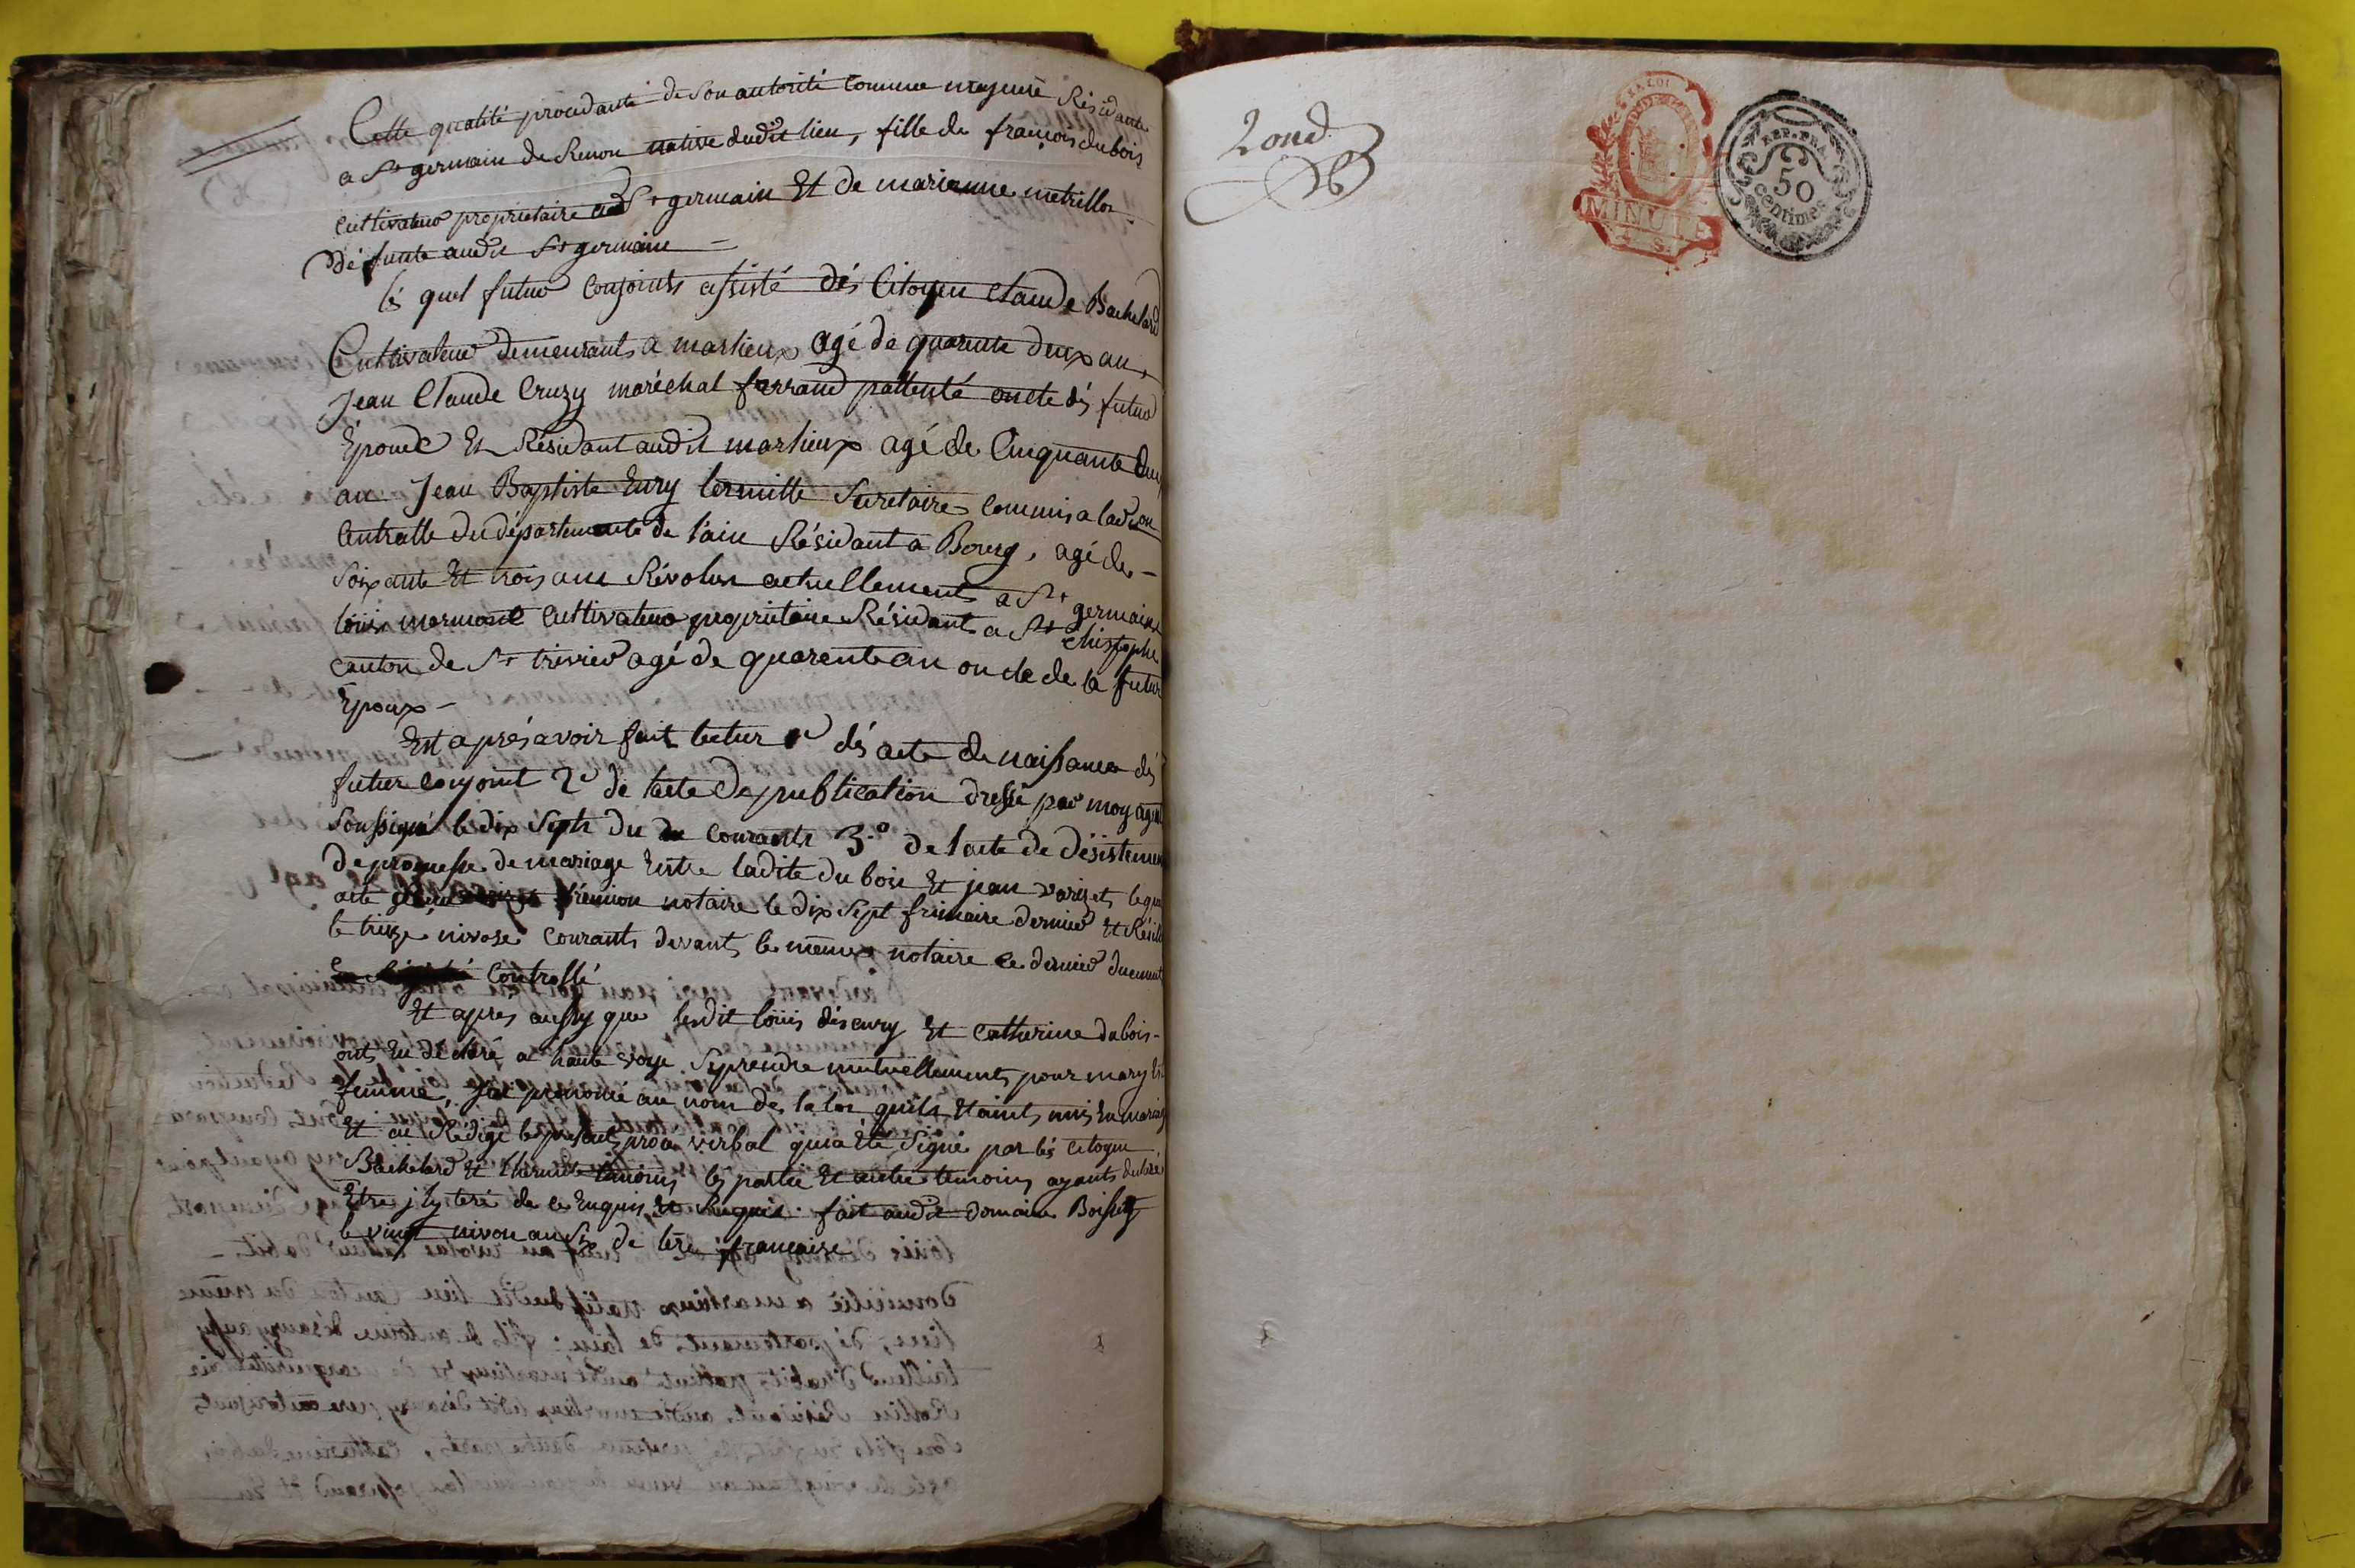 Cette qualité procedante de son autorité comme majeure Résidante
a St germain de Renon native dudit lieu, fille de françois dubois
Cultivateur proprietaire a St germain Et de marianne metrillon
Défunte audit St germain
lés quel futur Conjoints assisté dés Citoyen Claude Bachelard
Cultivateur demeurants a marlieux agé de quarente deux an,
Jean Claude Cruzy maréchal ferrand pattenté oncle dés futur
Epoux Et Résidant audit marlieux agé de Cinquante deux
an Jean Baptiste Eury lermitte Secretaire Commis a
Centralle du département de l'ain Résidant a Bourg, agé de
Soixante Et trois ans Révolus actuellement a St germain
loüis marmont Cultivateur proprietaire Résidant a St Chistophe
canton de St trivier agé de quarente an oncle de la futur
Epoux
Et aprés avoir fait lectur dés acte de naissance dés
futur conjoint 2° de lacte de publication dressé par moy agent
Soussigné le dix Septs du courants 3.° de lacte de désistement
de promesse de mariage Entre ladite dubois Et jean varizet, le
acte notaire le dix Sept frimaire dernier Et Résilié
le treize nivose Courants devants le même notaire ce dernier duement
Controllé
Et aprés aussy que lesdit loüis déseury Et Catherine dubois
onts Eu déclaré a haute voye Seprendre mutuëllements pour mary Et
femme, Jai prononcé au nom de la loy quils Etaints unis En mariage
Et ai Rédigé le présents procés verbal qui a Eté Signé par lés Citoyen
Bachelard Et lhermite temoins les partie Et autre temoins ayants déclaré
Etre jlyteré de ce Enquis Et Requis. fait audit domaine Boisset
le vingt nivose an Six de lére française
2 ond
LA LOI
MINUTE
REP. FRA.
50
Centimes